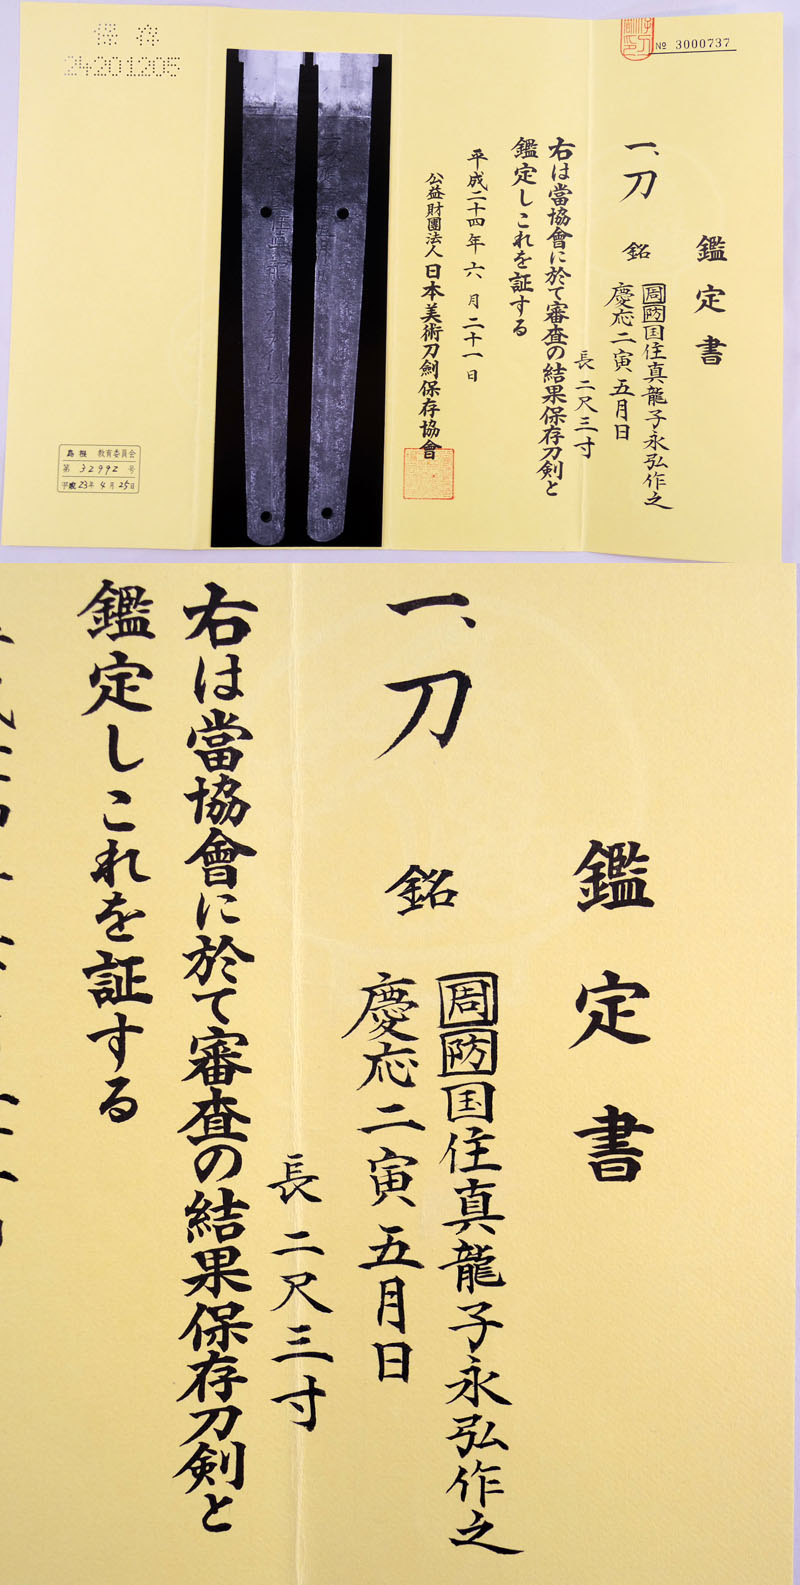 № 3000737
鑑定書
一、刀 銘 周防国住真龍子永弘作之
慶応二寅五月日
長 二尺三寸
右は當協會に於て審査の結果保存刀剣と
鑑定しこれを証する
平成二十四年六月二十一日
公益財團法人 日本美術刀劍保存協會
保存
24201205
島根 教育委員会
第 32992 号
平成 23年 4月 25日
鑑定書
一、刀 銘 周防国住真龍子永弘作之
慶応二寅五月日
長 二尺三寸
右は當協會に於て審査の結果保存刀剣と
鑑定しこれを証する